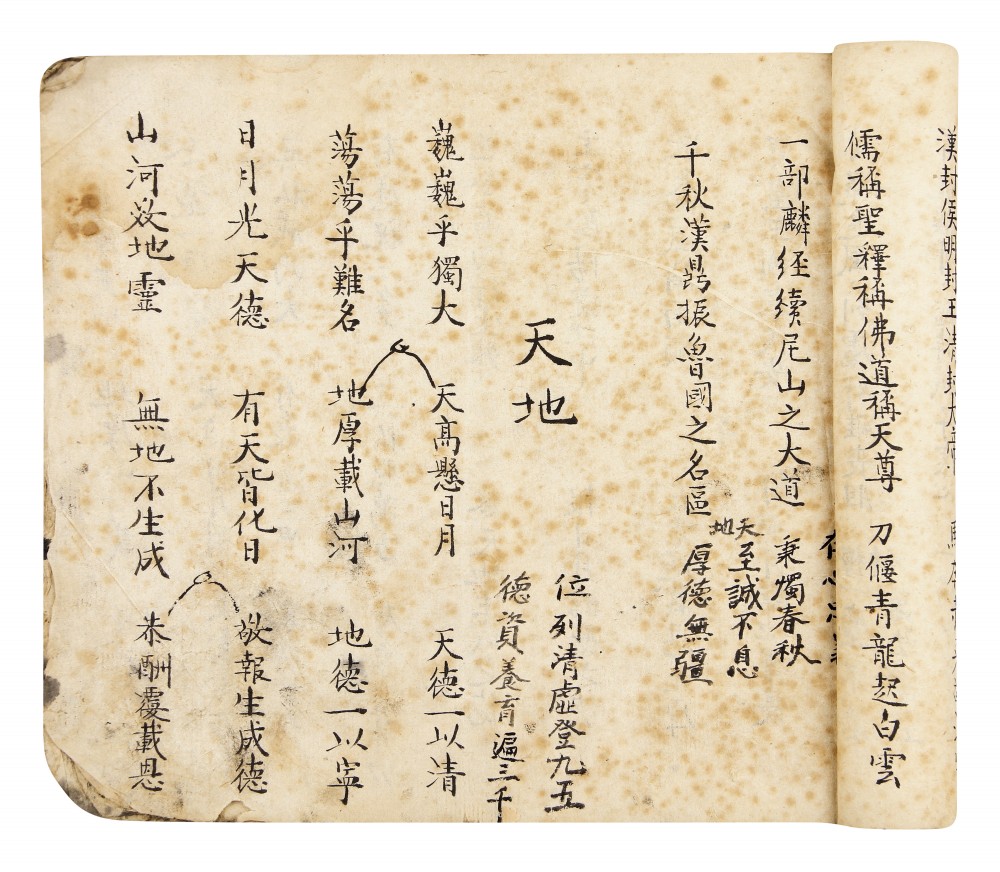 漢封侯明封王清封大帝
儒稱聖釋稱佛道稱天尊
刀偃青龍起白雲
一部麟经續尼山之大道
秉燭春秋
千秋漢鼎振魯國之名區
天地
至誠不息
厚德無疆
天地
位列清虛登九五
德資養育遍三千
巍巍乎獨大
天高懸日月
天德一以清
蕩蕩乎難名
地厚載山河
地德一以寧
日月光天德
有天皆化日
敬報生成德
山河效地靈
無地不生成
恭酬覆載恩